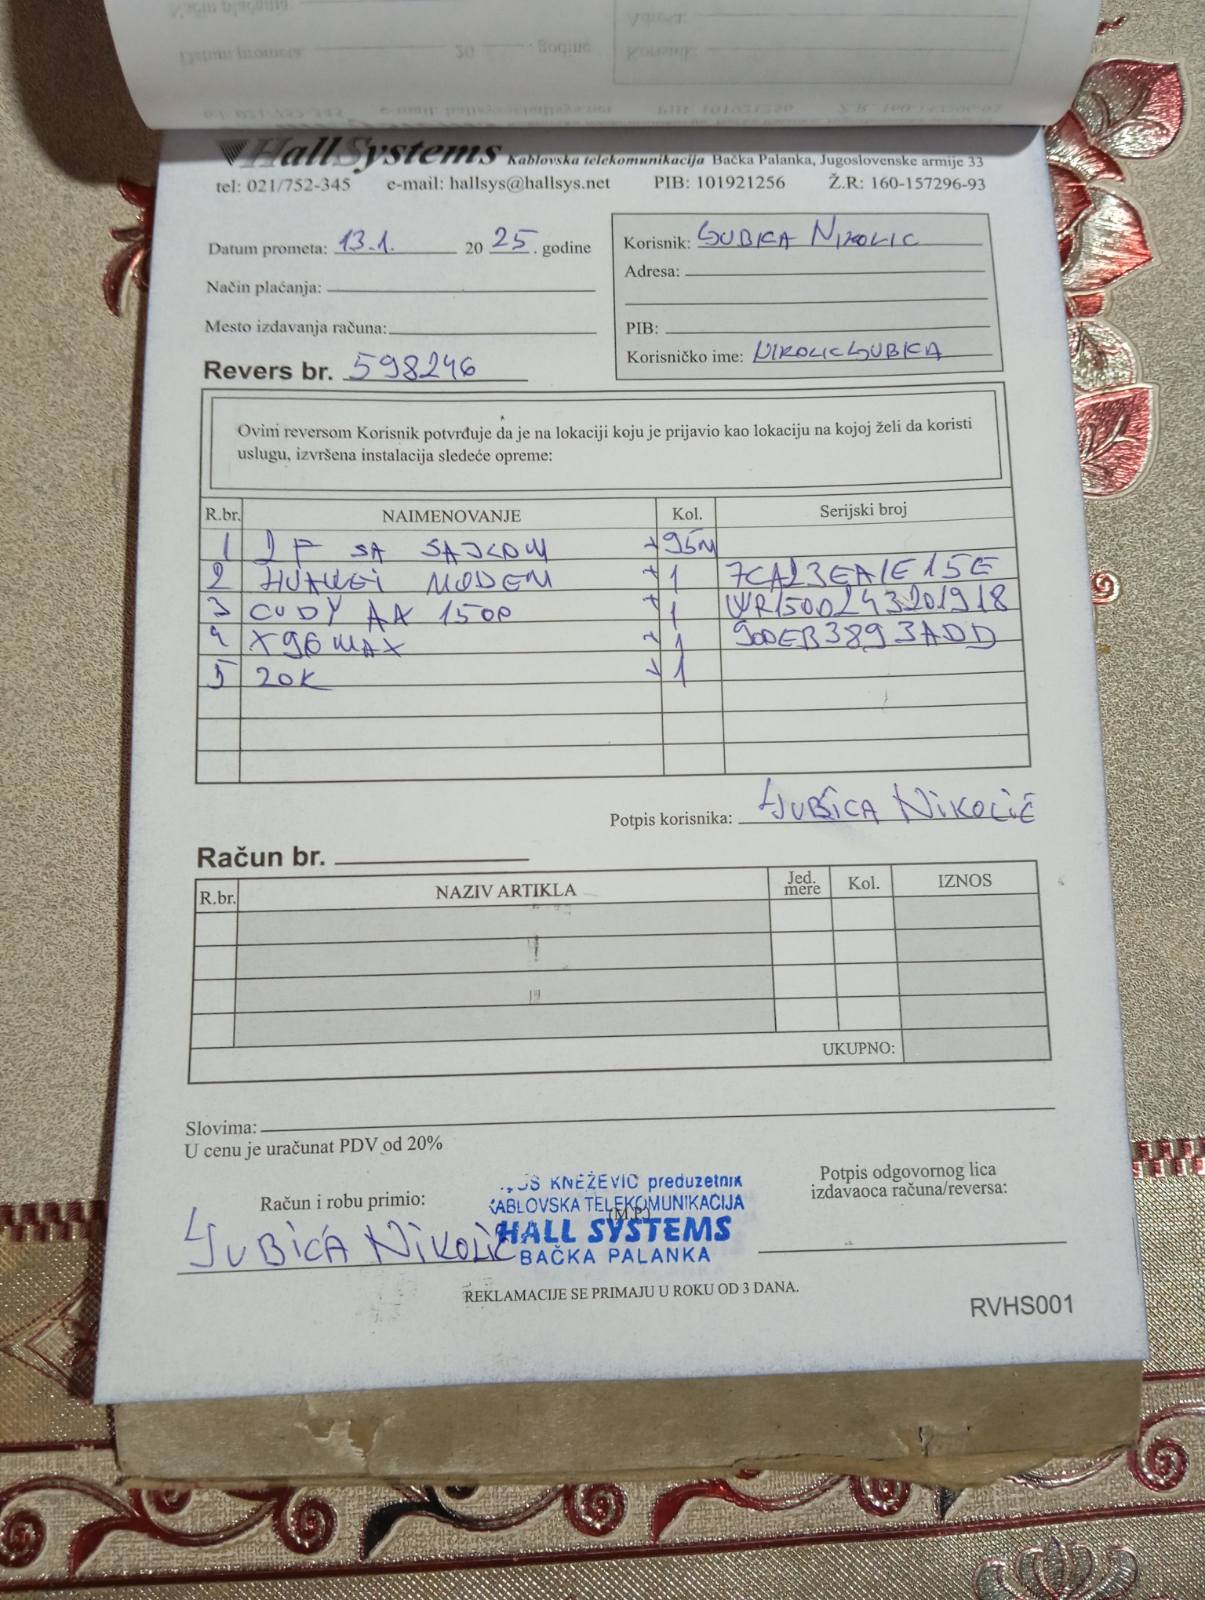 Hall Systems Kablovska telekomunikacija Bačka Palanka, Jugoslovenske armije 33
tel: 021/752-345 e-mail: hallsys@hallsys.net PIB: 101921256 Ž.R: 160-157296-93
Datum prometa: 13.1. 20 25. godine
Način plaćanja:
Mesto izdavanja računa:
Revers br. 598246
Korisnik: LJUBICA NIKOLIC
Adresa:
PIB:
Korisničko ime: NIKOLICLJUBICA
Ovim reversom Korisnik potvrđuje da je na lokaciji koju je prijavio kao lokaciju na kojoj želi da koristi
uslugu, izvršena instalacija sledeće opreme:
R.br. NAIMENOVANJE Kol. Serijski broj
1 SA SAJLOM 95M
2 HUAWEI MODEM 1 7CA23EA1E15E
3 CUDY AX 1500 1 WR1500243201918
4 X96 MAX 1 90DEB3893ADD
5 20K 1
Potpis korisnika: LJUBICA NIKOLIĆ
Račun br.
R.br. NAZIV ARTIKLA Jed. mere Kol. IZNOS
UKUPNO:
Slovima:
U cenu je uračunat PDV od 20%
Račun i robu primio:
LJUBICA NIKOLIĆ
KNEŽEVIĆ preduzetnik
KABLOVSKA TELEKOMUNIKACIJA
(M.P.)
HALL SYSTEMS
BAČKA PALANKA
Potpis odgovornog lica
izdavaoca računa/reversa:
REKLAMACIJE SE PRIMAJU U ROKU OD 3 DANA.
RVHS001